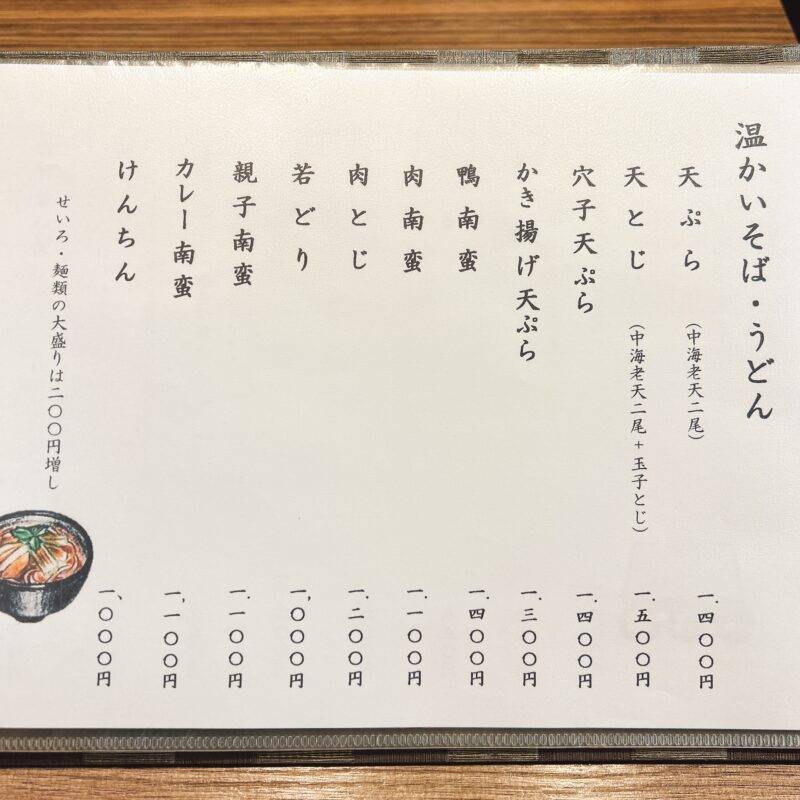 温かいそば・うどん
天ぷら（中海老天二尾） 一、四〇〇円
天とじ（中海老天二尾+玉子とじ） 一、五〇〇円
穴子天ぷら 一、四〇〇円
かき揚げ天ぷら 一、三〇〇円
鴨南蛮 一、四〇〇円
肉南蛮 一、一〇〇円
肉とじ 一、二〇〇円
若どり 一、〇〇〇円
親子南蛮 一、一〇〇円
カレー南蛮 一、一〇〇円
けんちん 一、〇〇〇円
せいろ・麺類の大盛りは二〇〇円増し